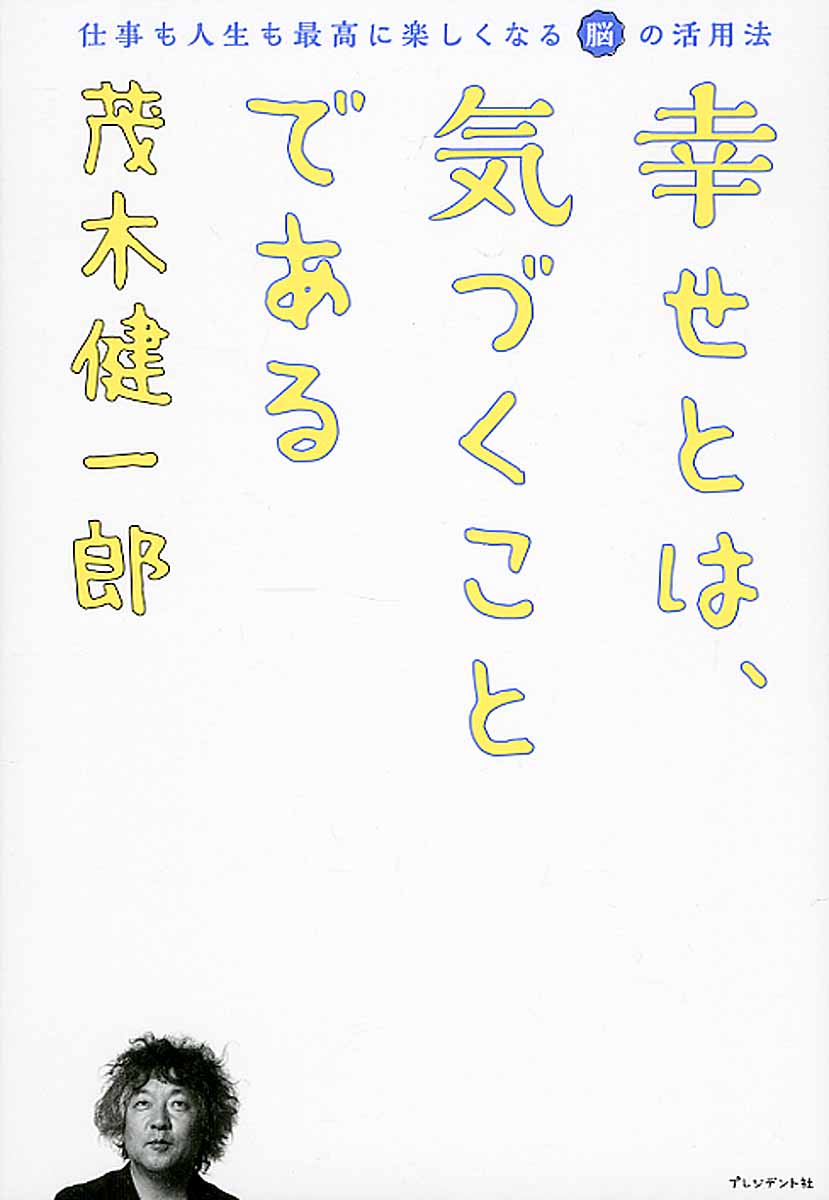 仕事も人生も最高に楽しくなる脳の活用法
幸せとは、
気づくこと
である
茂木健一郎
プレジデント社